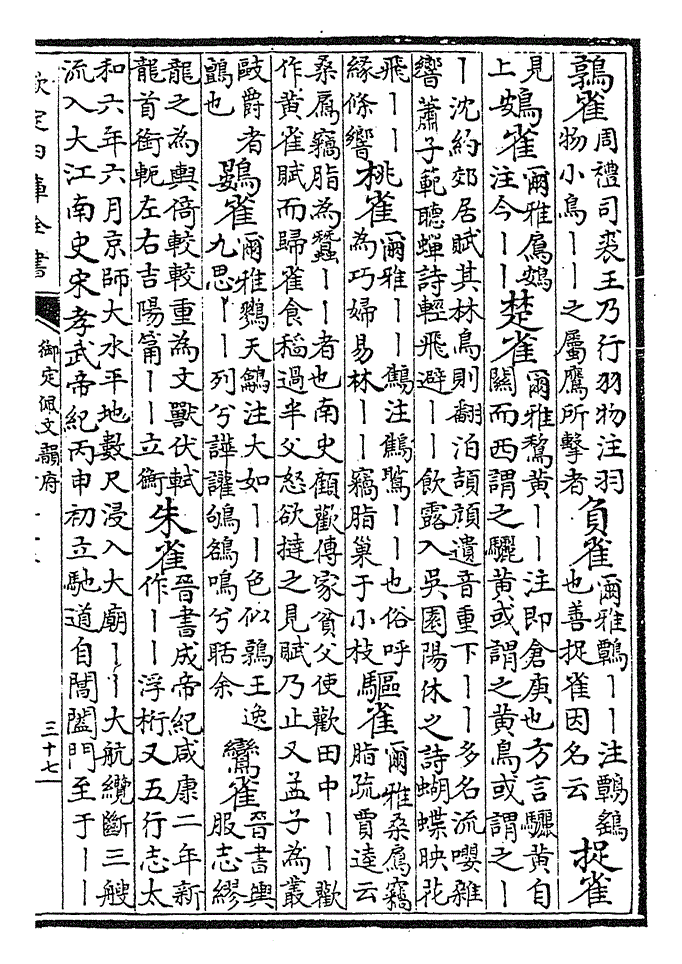 鶉雀周禮司裘王乃行羽物注羽物小鳥丨丨之屬鷹所擊者負雀爾雅鷣丨丨注鷣鷂也善捉雀因名云捉雀
見上鴳雀爾雅鳸鴳注今丨丨楚雀爾雅鶖黄丨丨注即倉庚也方言驪黄自關而西謂之驪黄或謂之黄鳥或謂之丨
丨沈約郊居賦其林鳥則翻泊頡頏遺音重下丨丨多名流嚶雜響蕭子範聽蟬詩輕飛避丨丨飲露入吳園陽休之詩蝴蝶映花
飛丨丨緣條響桃雀爾雅丨丨鷦注鷦䳟丨丨也俗呼為巧婦易林丨丨竊脂巢于小枝驅雀爾雅桑鳸竊脂疏賈逵云
桑鳸竊脂為蠶丨丨者也南史顧歡傳家貧父使歡田中丨丨歡作黄雀賦而歸雀食稻過半父怒欲撻之見賦乃止又孟子為叢
敺爵者鸇也鷃雀爾雅鷚天鸙注大如丨丨色似鶉王逸九思丨丨列兮譁讙鴝鵒鳴兮聒余鸞雀晉書輿服志繆
龍之為輿倚較較重為文獸伏軾龍首銜軛左右吉陽筩丨丨立衡朱雀晉書成帝紀咸康二年新作丨丨浮桁又五行志太
和六年六月京師大水平地數尺浸入大廟丨丨大航纜斷三艘流入大江南史宋孝武帝紀丙申初立馳道自閶闔門至于丨丨
欽定四庫全書
御定佩文韻府
三十七